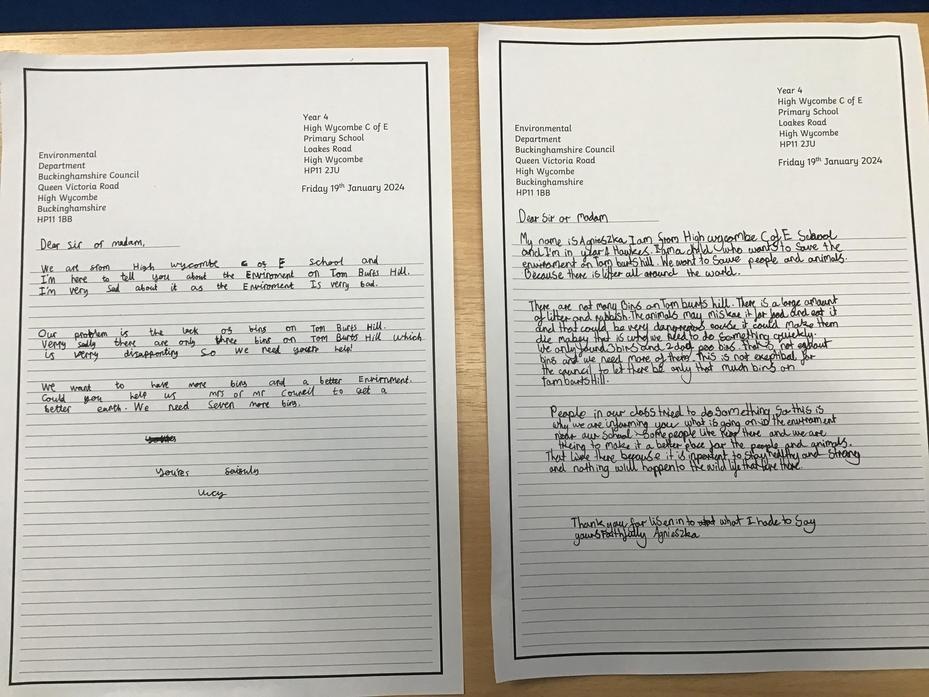 Year 4
High Wycombe C of E
Primary School
Loakes Road
High Wycombe
HP11 2JU
Friday 19th January 2024
Environmental
Department
Buckinghamshire Council
Queen Victoria Road
High Wycombe
Buckinghamshire
HP11 1BB
Dear Sir or madam,
We are from High wycombe C of E School and
I'm here to tell you about the Enviroment on Tom Burts Hill.
I'm verry sad about it as the Enviroment Is verry bad.
Our problem is the lack of bins on Tom Burts Hill.
Verry sadly there are only three bins on Tom Burts Hill which
is verry disapponting so We need your help!
We want to have more bins and a better Enviroment.
Could you help us mrs or mr Councll to get a
better earth. We need Seven more bins.
Yours
Year 4
High Wycombe C of E
Primary School
Loakes Road
High Wycombe
HP11 2JU
Friday 19th January 2024
Environmental
Department
Buckinghamshire Council
Queen Victoria Road
High Wycombe
Buckinghamshire
HP11 1BB
Dear Sir or madam
My name is Agnieszka I am from High wycombe C of E School
and I'm in year 4 Hawkes. I'm a child who wants to save the
enviroment on Tom burts hill. We want to save people and animals.
Because there is litter all around the world.
There are not many Bins on Tom burts hill. There is a large amount
of litter and rubbish. The animals may miskae it for food and eat it
and that could be very dangerous cause it could make them
die mabey that is why we need to do something quickly.
We only found 3 bins and 2 poo bins. that is not
bins and we need more of them. This is not exeptibal for
the council to let there be only that much bins on
Tam burts Hill.
People in our class tried to do something So this is
why we are informing you what is going on the enviroment
near our school. Some people like there and we are
trieing to make it a better place for the people and animals.
That live there because it is inportent to stay healthy and Strong
and nothing will happen to the wild life that there.
Thank you for lisen in to what I hade to Say
yours Faithfully Agnieszka